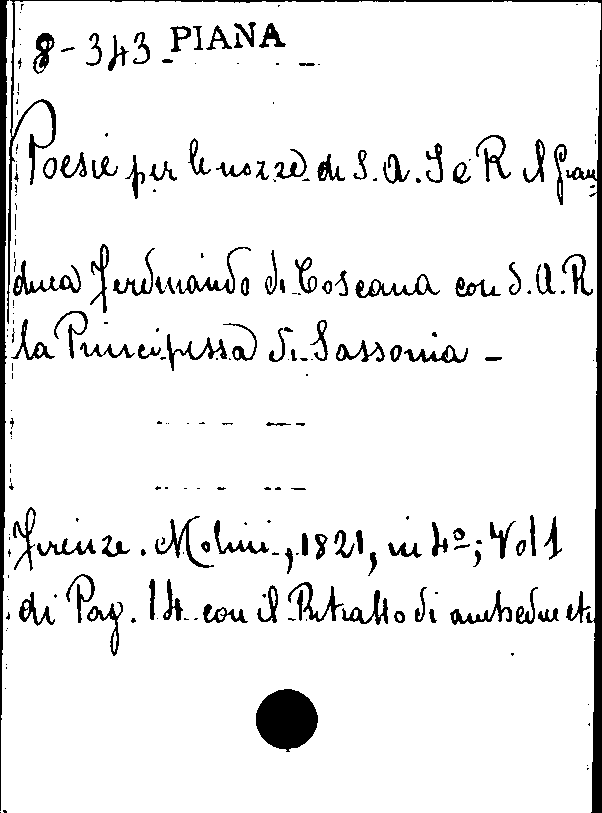 8-343 PIANA
Poesie per le nozze di S. A. I e R Il Gran=
duca Ferdinando di Toscana con S. A. R
la Principessa di Sassonia -
Firenze. Molini, 1821, in 4º; Vol 1
di Pag. 14 con il Ritratto di ambedue